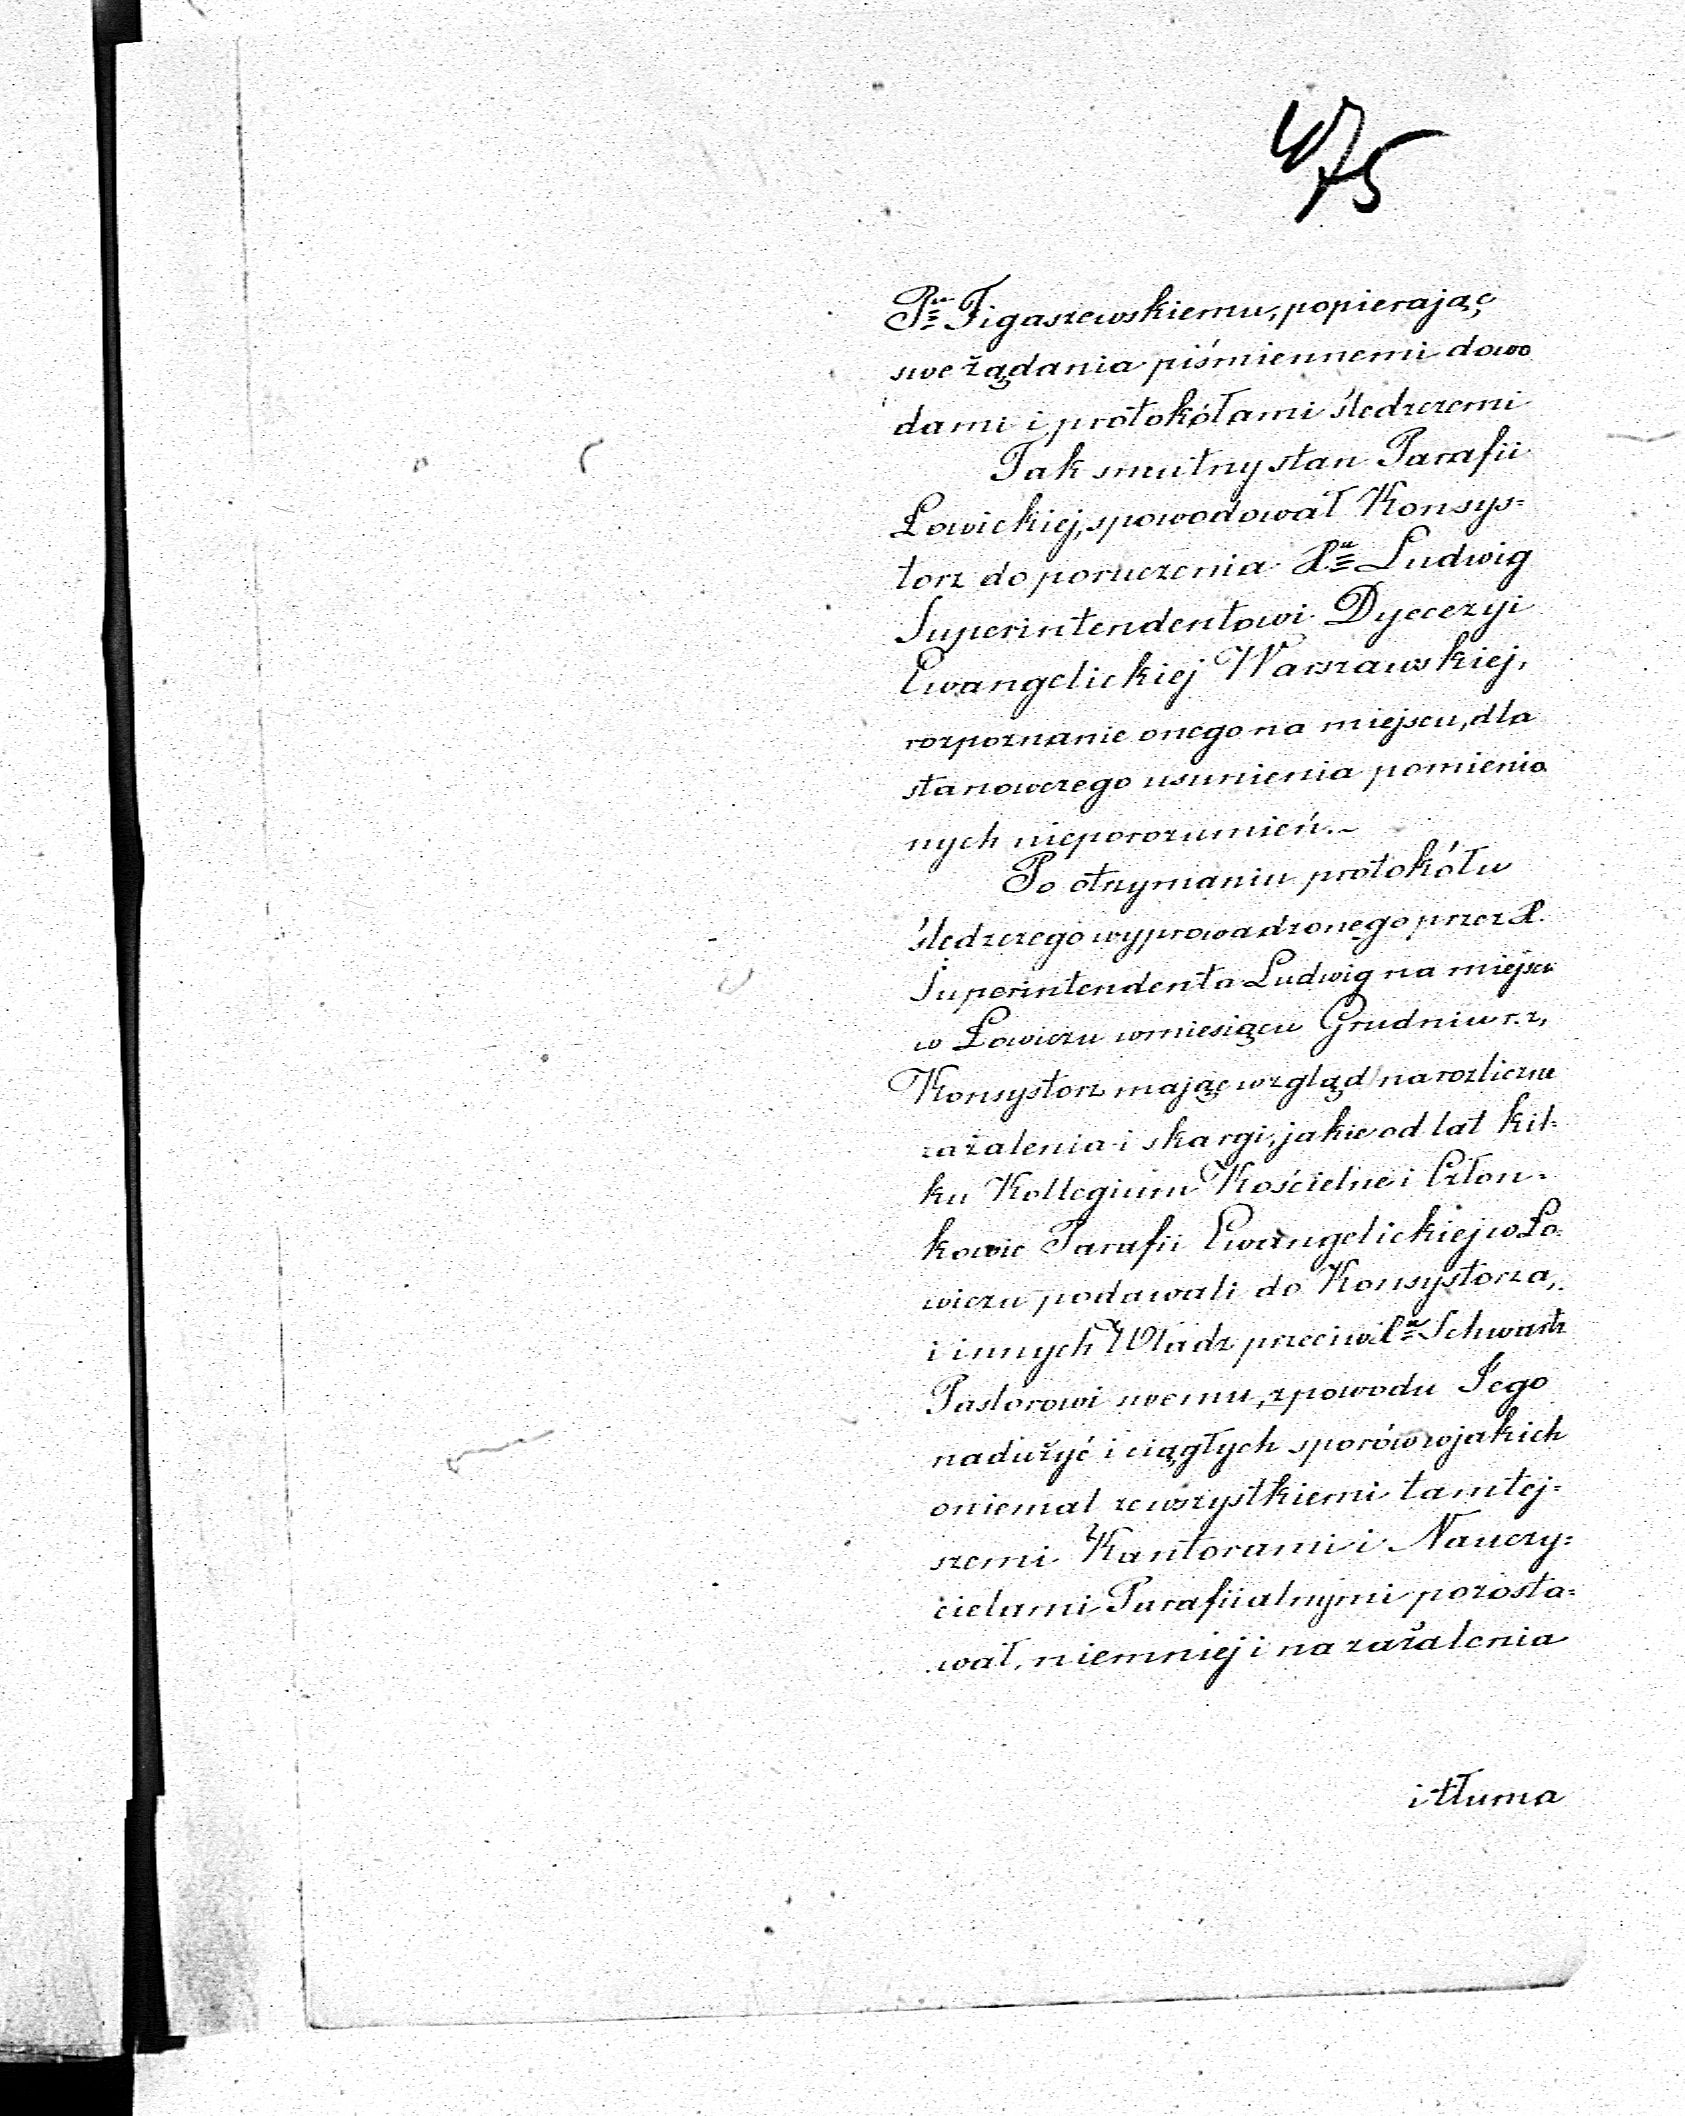 475
Pu Figaszewskiemu, popierając
swe żądania piśmiennemi dowo
dami i protokółami śledczemi
Tak smutny stan Parafii
Łowickiej, spowodował Konsys=
torz do poruczenia Xu Ludwig
Superintendentowi Dyecezyi
Ewangelickiej Warszawskiej,
rozpoznanie onego na miejscu, dla
stanowczego usunienia pomienio
nych nieporozumień.-
Po otrzymaniu protokółu
śledczego wyprowadzonego przez X.
Superintendenta Ludwig na miejscu
w Łowiczu w miesiącu Grudniu r. z,
Konsystorz mając wzgląd na rozliczne
zażalenia i skargi, jakie od lat kil-
ku Kollegium Kościelne i Człon-
kowie Parafii Ewangelickiej w Ło-
wiczu podawali do Konsystorza,
i innych Władz przeciw Schwartz
Pastorowi swemu, z powodu Jego
nadużyć i ciągłych sporów w jakich
oniemal ze wszystkiemi tamtej=
szemi Kantorami i Nauczy=
cielami Parafiialnymi pozosta=
wał, niemniej i na zażalenia
i tłuma